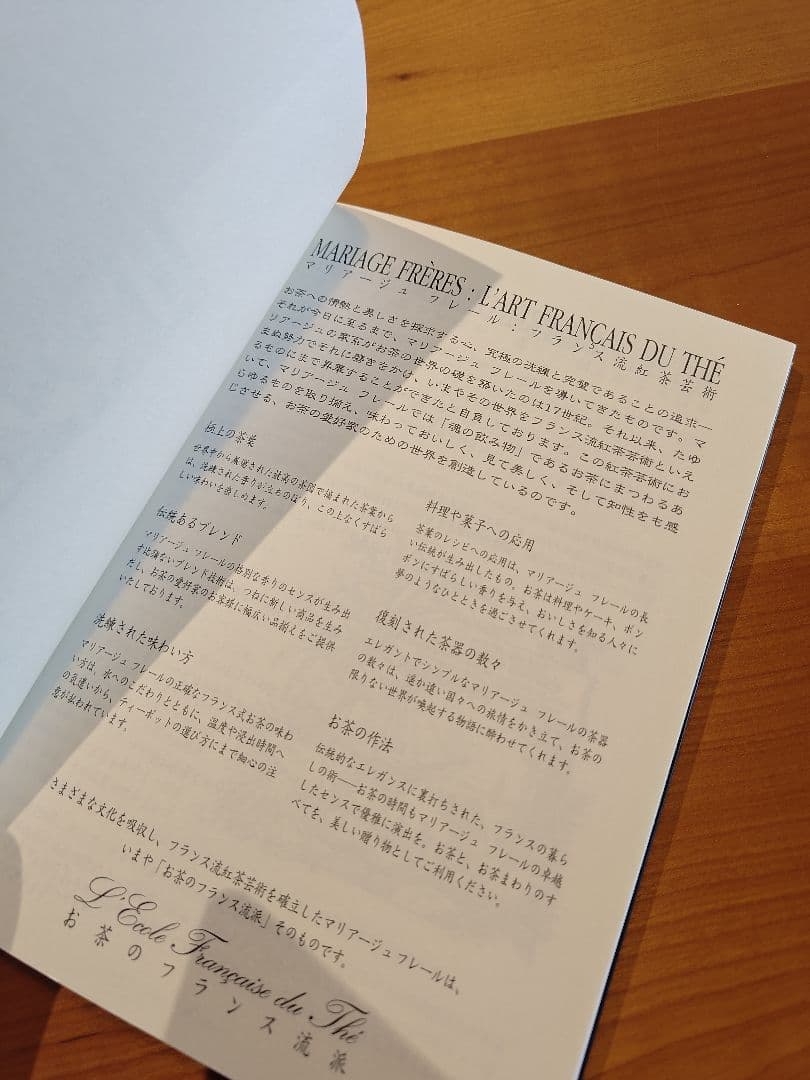 MARIAGE FRÈRES : L'ART FRANÇAIS DU THÉ
マリアージュ フレール：フランス流紅茶芸術
お茶への情熱と美しさを探求する心、究極の洗練と完璧であることの追求―
それが今日に至るまで、マリアージュ フレールを導いてきたものです。マ
リアージュの家系がお茶の世界の礎を築いたのは17世紀。それ以来、たゆ
まぬ努力でそれに磨きをかけ、いまやその世界をフランス流紅茶芸術といえ
るものにまで昇華することができたと自負しております。この紅茶芸術にお
いて、マリアージュ フレールでは「魂の飲み物」であるお茶にまつわるあ
らゆるものを取り揃え、味わっておいしく、見て美しく、そして知性をも感
じさせる、お茶の愛好家のための世界を創造しているのです。
極上の茶葉
世界中から厳選された最高の茶園で摘まれた茶葉から
は、洗練された香りが立ちのぼり、この上なくすばら
しい味わいを楽しめます。
伝統あるブレンド
マリアージュ フレールの格別な香りのセンスが生み出
す比類ないブレンド技術は、つねに新しい商品を生み
だし、お茶の愛好家のお客様に幅広い品揃えをご提供
いたしております。
洗練された味わい方
マリアージュ フレールの正確なフランス式お茶の味わ
い方は、水へのこだわりとともに、温度や浸出時間へ
の気遣いから、ティーポットの選び方にまで細心の注
意が払われています。
料理や菓子への応用
茶葉のレシピへの応用は、マリアージュ フレールの長
い伝統が生み出したもの。お茶は料理やケーキ、ボン
ボンにすばらしい香りを与え、おいしさを知る人々に
夢のようなひとときを過ごさせてくれます。
復刻された茶器の数々
エレガントでシンプルなマリアージュ フレールの茶器
の数々は、遥か遠い国々への旅情をかき立て、お茶の
限りない世界が喚起する物語に酔わせてくれます。
お茶の作法
伝統的なエレガンスに裏打ちされた、フランスの暮ら
しの術――お茶の時間もマリアージュ フレールの卓越
したセンスで優雅に演出を。お茶と、お茶まわりのす
べてを、美しい贈り物としてご利用ください。
さまざまな文化を吸収し、フランス流紅茶芸術を確立したマリアージュ フレールは、
いまや「お茶のフランス流派」そのものです。
L'Ecole Française du Thé
お茶のフランス流派